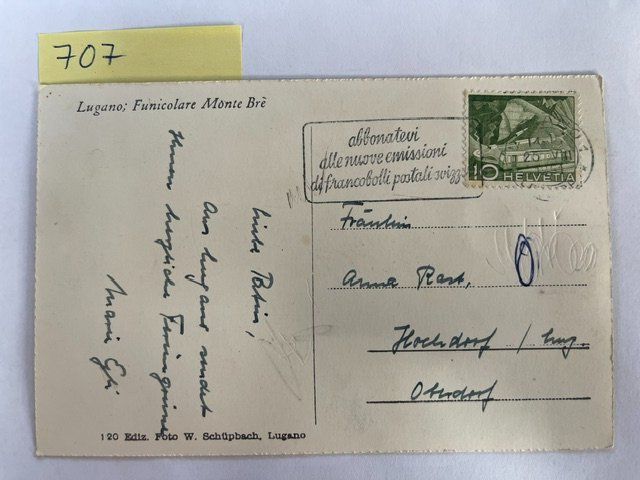 707
Lugano; Funicolare Monte Brè
abbonatevi
alle nuove emissioni
di francobolli postali svizz
10 HELVETIA
25. VII
Liebe Patin,
Aus Lugano sendet
Ihnen herzliche Feriengrüsse
Marie Egli
Fräulein
Anna Rast,
Hochdorf / Luz.
Oberdorf
120 Ediz. Foto W. Schüpbach, Lugano